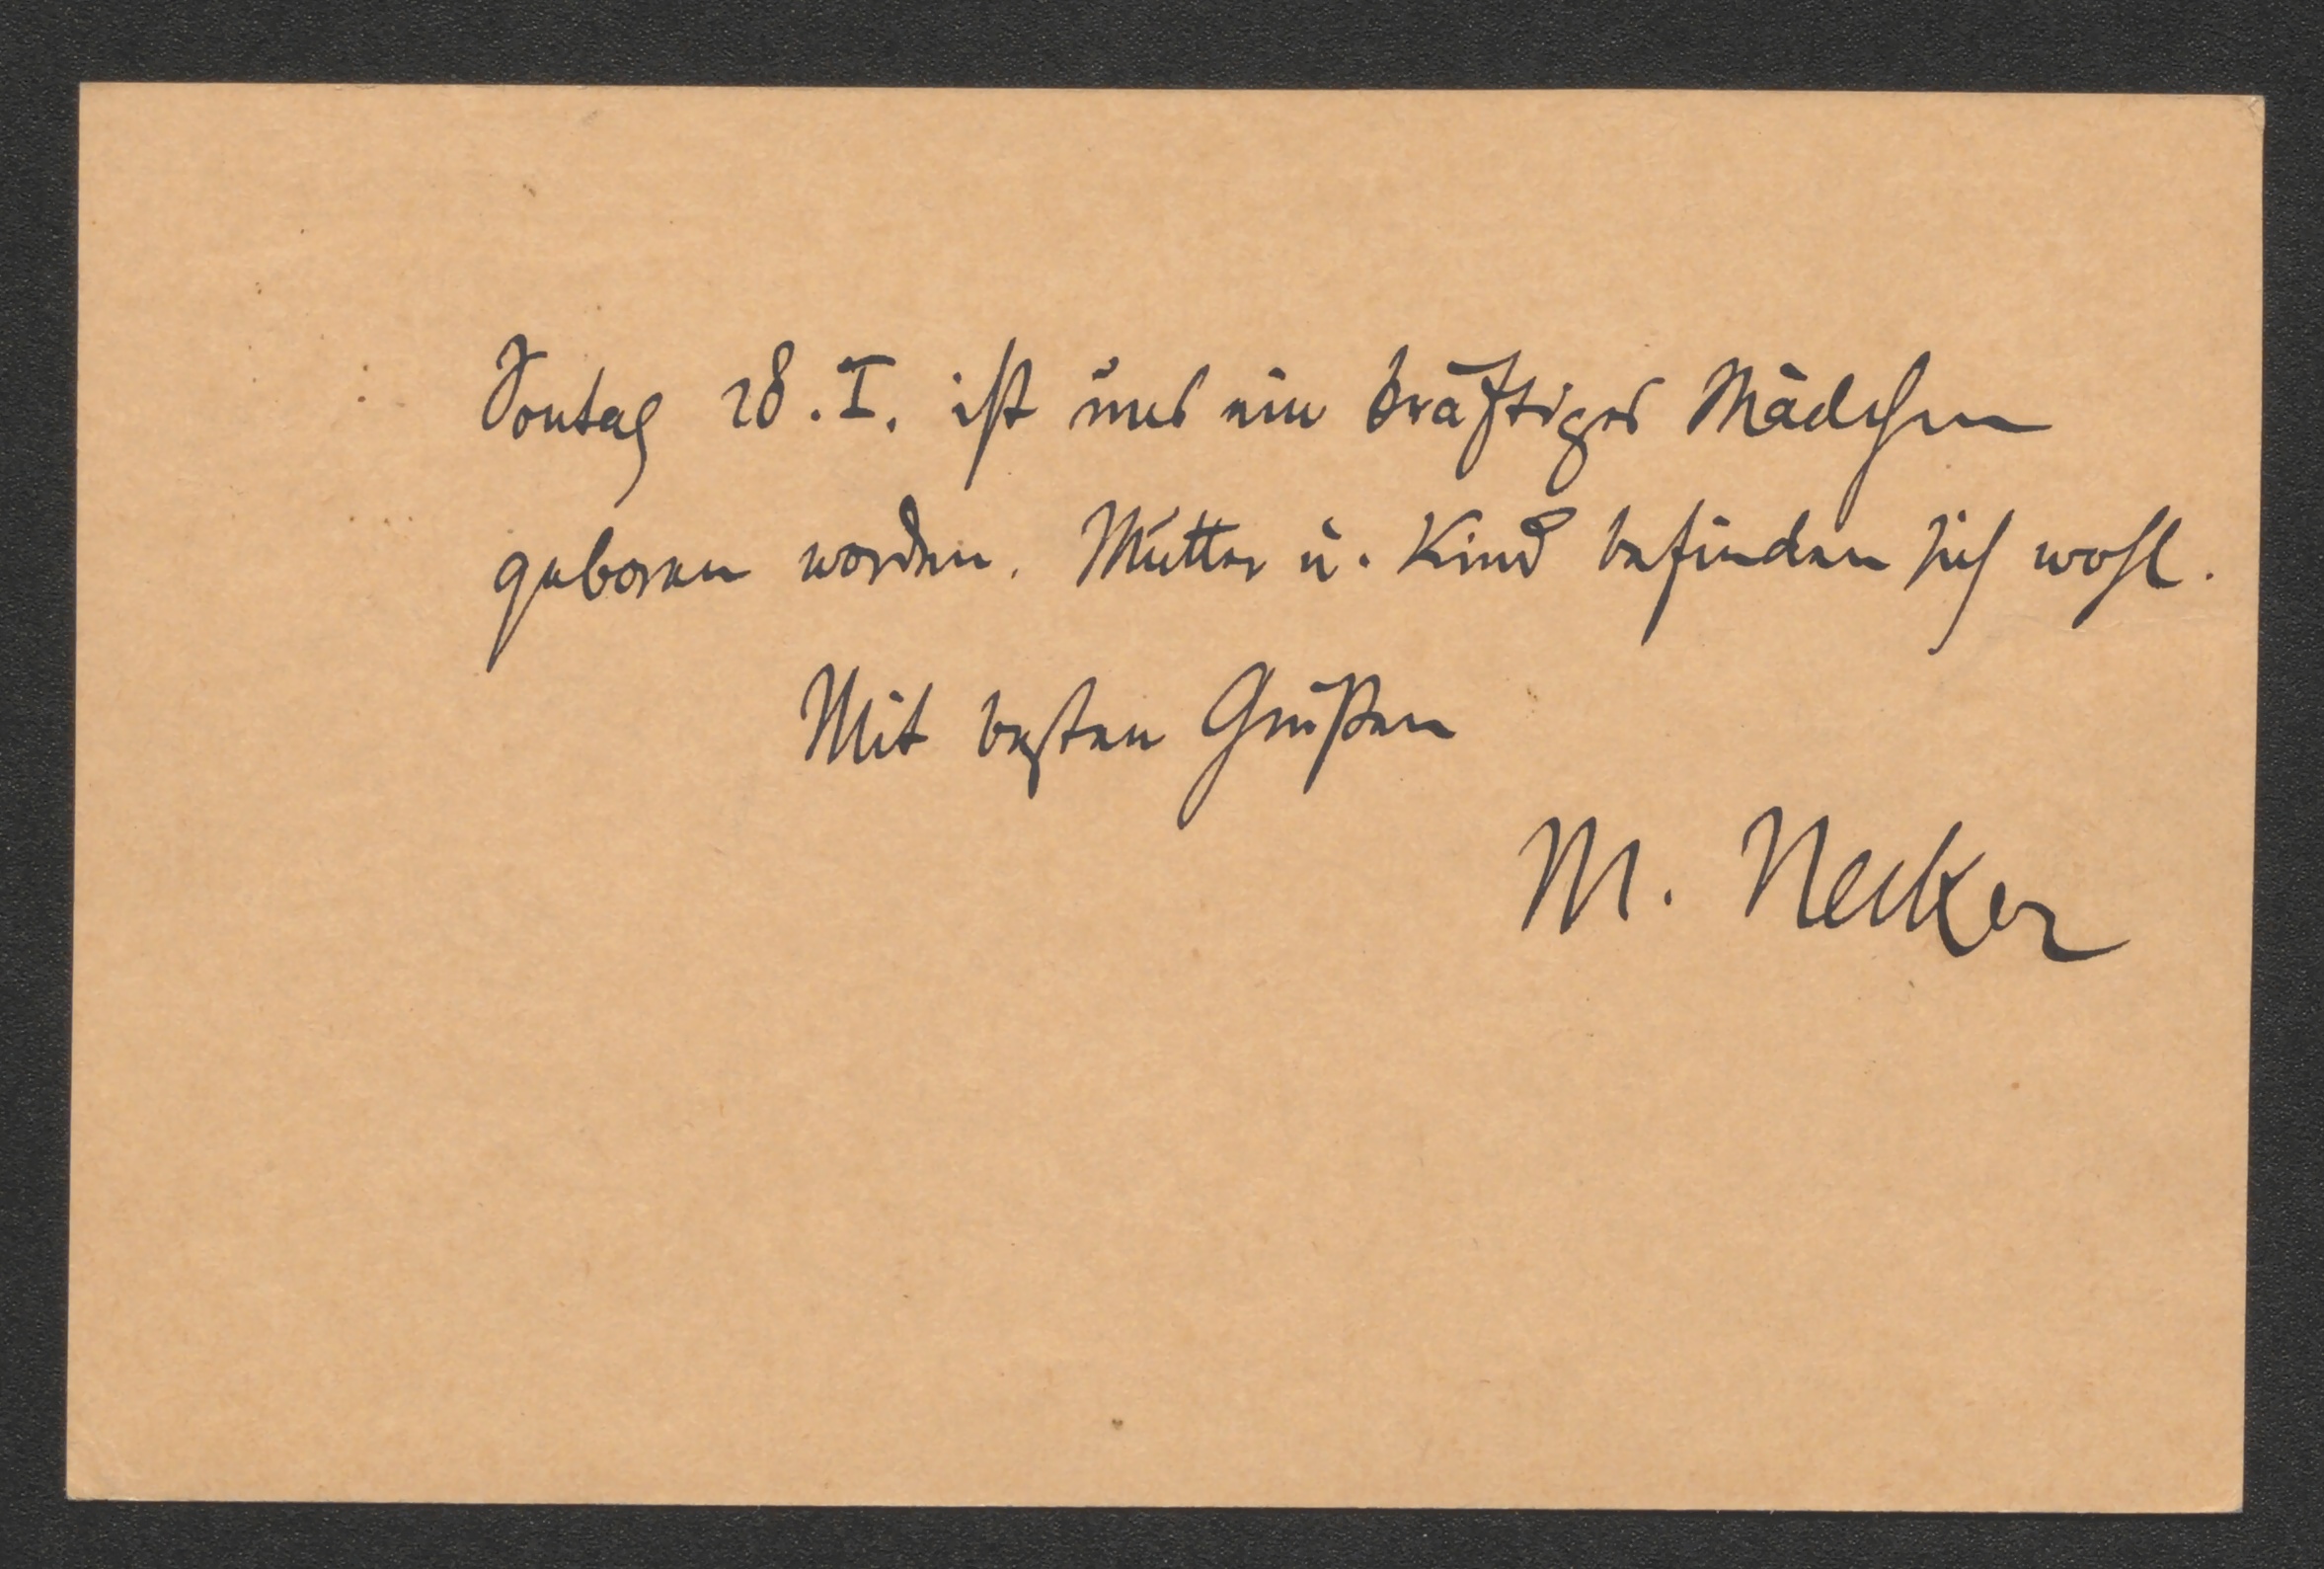 Sontag 28. I. ist uns ein kräftiges Mädchen
geboren worden. Mutter u. Kind befinden sich wohl.
Mit besten Grüßen
M. Necker